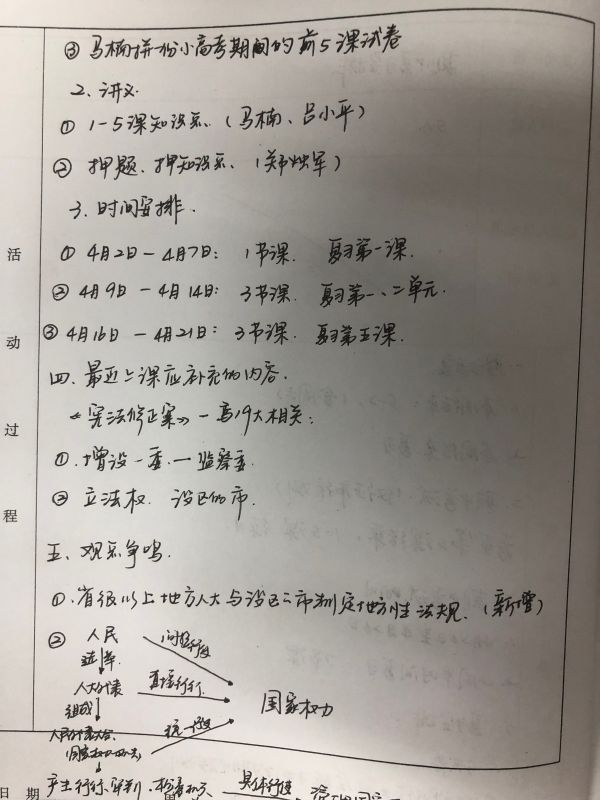 ③ 马楠拼一份小高考期间的前5课试卷
2、讲义
① 1-5课知识点.(马楠、吕小平)
② 押题、押知识点、(郑烛军)
3、时间安排.
① 4月2日 — 4月7日: 1节课. 复习第一课.
② 4月9日 — 4月14日: 3节课. 复习第一、二单元.
③ 4月16日 — 4月21日: 3节课. 复习第五课.
四、最近上课应补充的内容.
《宪法修正案》— 与19大相关:
①.增设一委.—监察委.
② 立法权. 设区的市.
五、观点争鸣.
①.省级以上地方人大与设区的市制定地方性法规.(新增)
② 人民 间接行使
选举
人大代表 直接行使
组成 国家权力
人民代表大会 统一行使
产生行政、审判、检察机关 具体行使
活动过程
日期